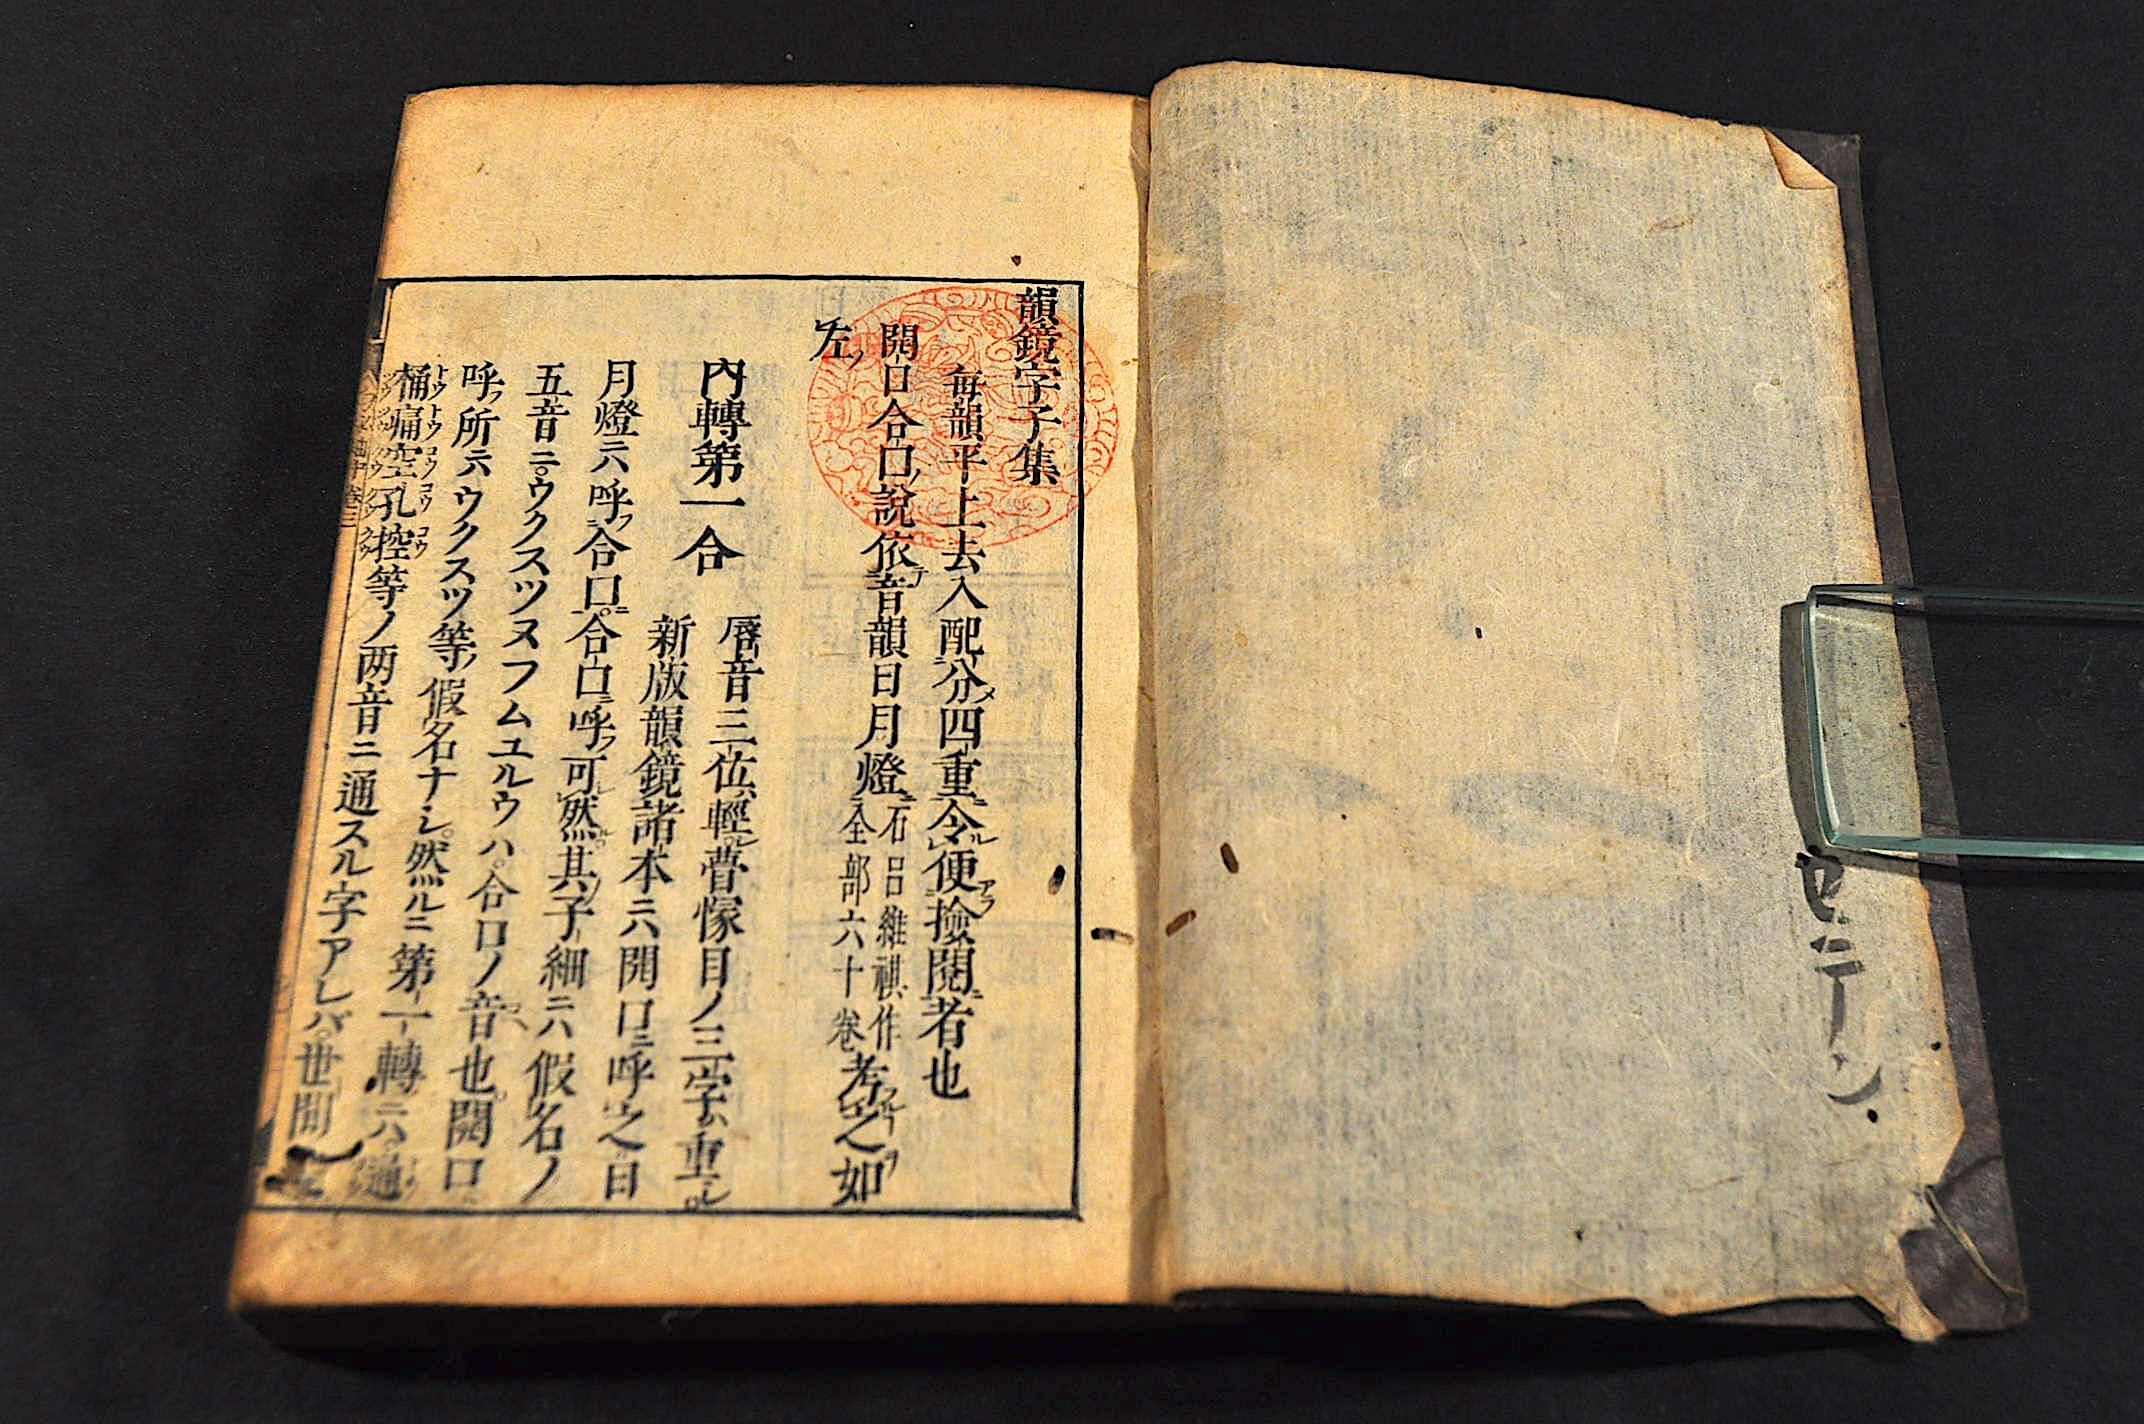 セニーン
韻鏡字子集
毎韻平上去入配分メ四重令ル便アラ撿閲ニ者也
開口合口ノ説依テ音韻日月燈ニ石呂維祺作全部六十巻考之如
左ノ
內轉第一合
唇音三位ハ輕シ瞢懞目ノ三字ハ重シ
新版韻鏡諸本ニハ開口ニ呼之日
月燈ニハ呼フ合口ニ合口ニ呼フ可然其子細ニハ假名ノ
五音ニウクスツヌフムユルウハ合口ノ音也開口
呼フ所ニハウクスツ等ノ假名ナシ然ルニ第一轉ニハ通
桶痛空孔控等ノ两音ニ通スル字アレバ世間
トウトウコウコウコウ